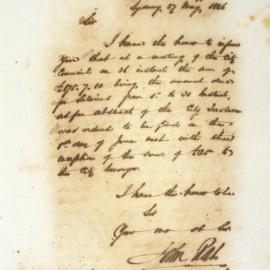 Sydney 27 May, 1846
Sir
I have the honor to inform
you that at a meeting of the City
Council on 26 instant the sum of
£175.7.10 being the amount due
for Salaries from 1st to 31 Instant,
as per abstract of the City Treasurer
was ordered to be paid on the
1st day of June next with the
exception of the sum of £25 to
the City Surveyor
I have the honor to be
Sir
Your mo ob Ser
John Rae